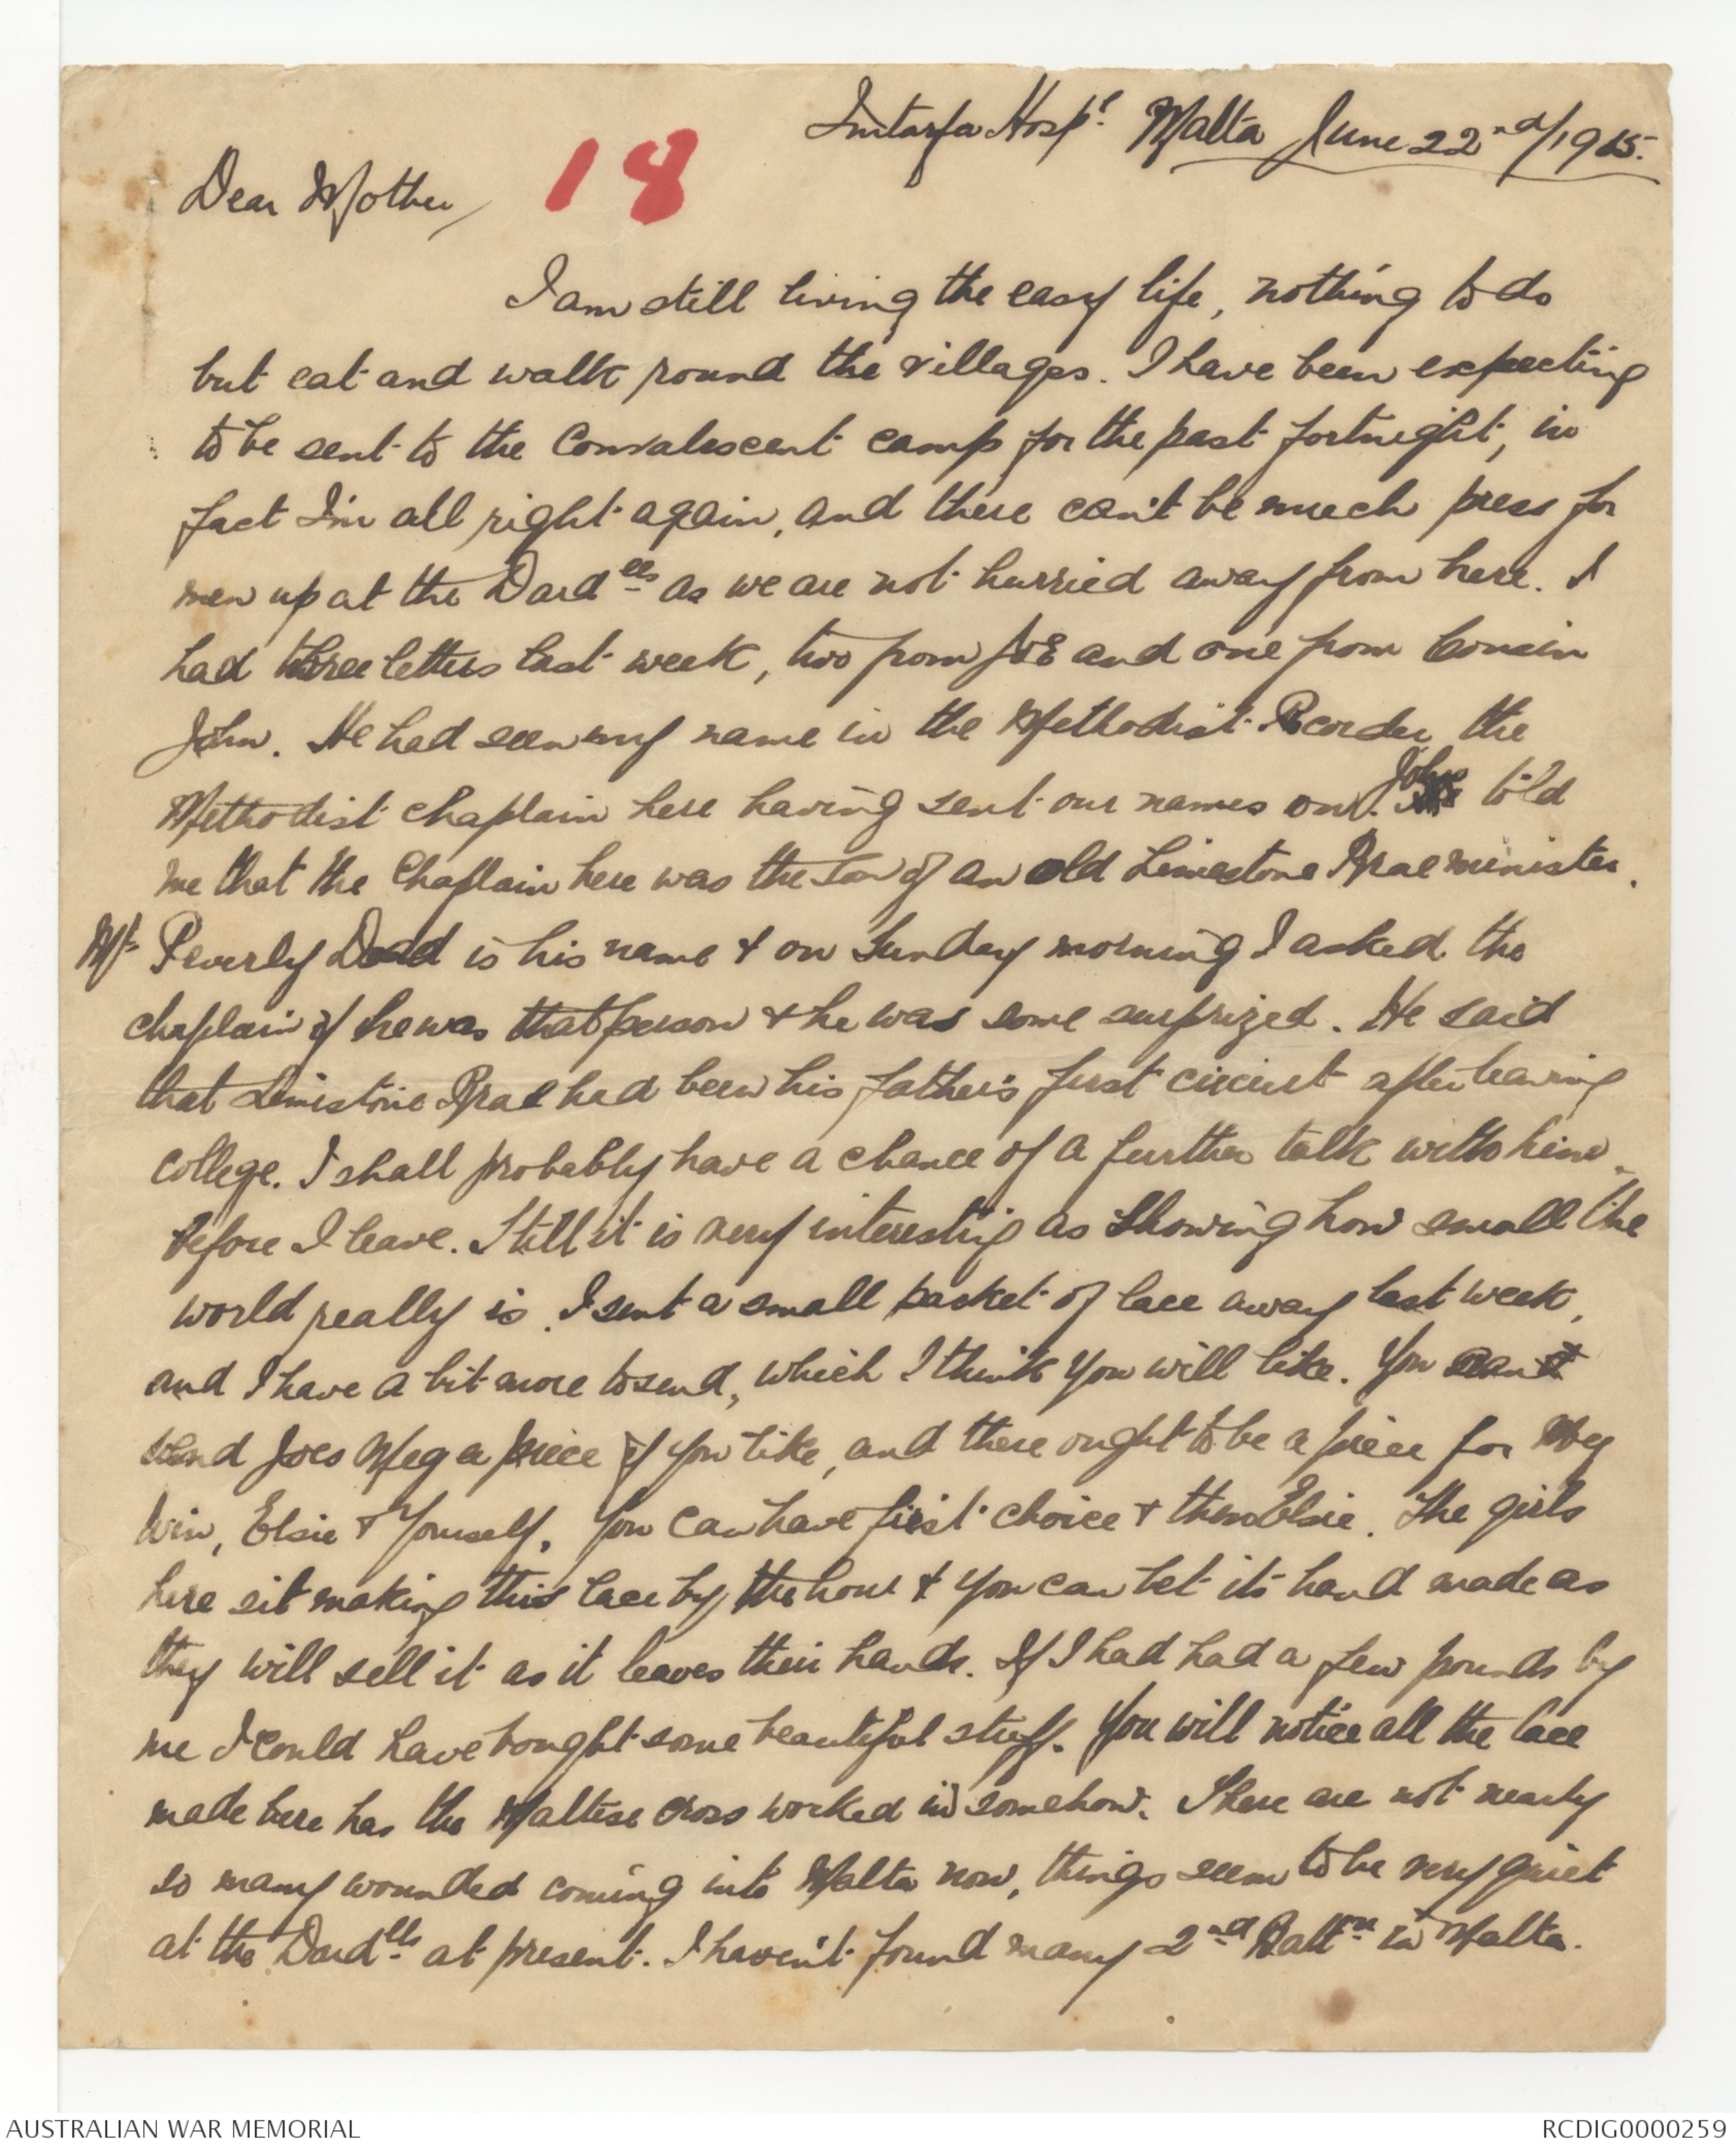 Imtarfa Hospl. Malta June 22nd/1915.
18
Dear Mother,
I am still living the easy life, nothing to do
but eat and walk round the villages. I have been expecting
to be sent to the Convalescent camp for the past fortnight, in
fact I'm all right again, and there can't be much press for
men up at the Dardells as we are not hurried away from here. I
had three letters last week, two from Joe and one from Cousin
John. He had seen my name in the Methodist Recorder, the
Methodist chaplain here having sent our names on. John told
me that the Chaplain here was the son of an old Limestone Brae minister.
Mr Peverly Dodd is his name & on Sunday morning I asked the
chaplain if he was that person & he was some surprized. He said
that Limestone Brae had been his father's first circuit after leaving
college. I shall probably have a chance of a further talk with him
before I leave. Still it is very interesting as showing how small the
world really is. I sent a small packet of lace away last week,
and I have a bit more to send, which I think you will like. You can
send Joes Meg a piece if you like, and there ought to be a piece for Meg
Win, Elsie & Yourself. You can have first choice & then Elsie. The girls
here sit making this lace by the hour & you can bet its hand made as
they will sell it as it leaves their hands. If I had had a few pounds by
me I could have bought some beautiful stuff. You will notice all the lace
made here has the Maltese cross worked in somehow. There are not nearly
so many wounded coming into Malta now, things seem to be very quiet
at the Dardlls at present. I haven't found many 2nd Battn in Malta.
AUSTRALIAN WAR MEMORIAL
RCDIG0000259